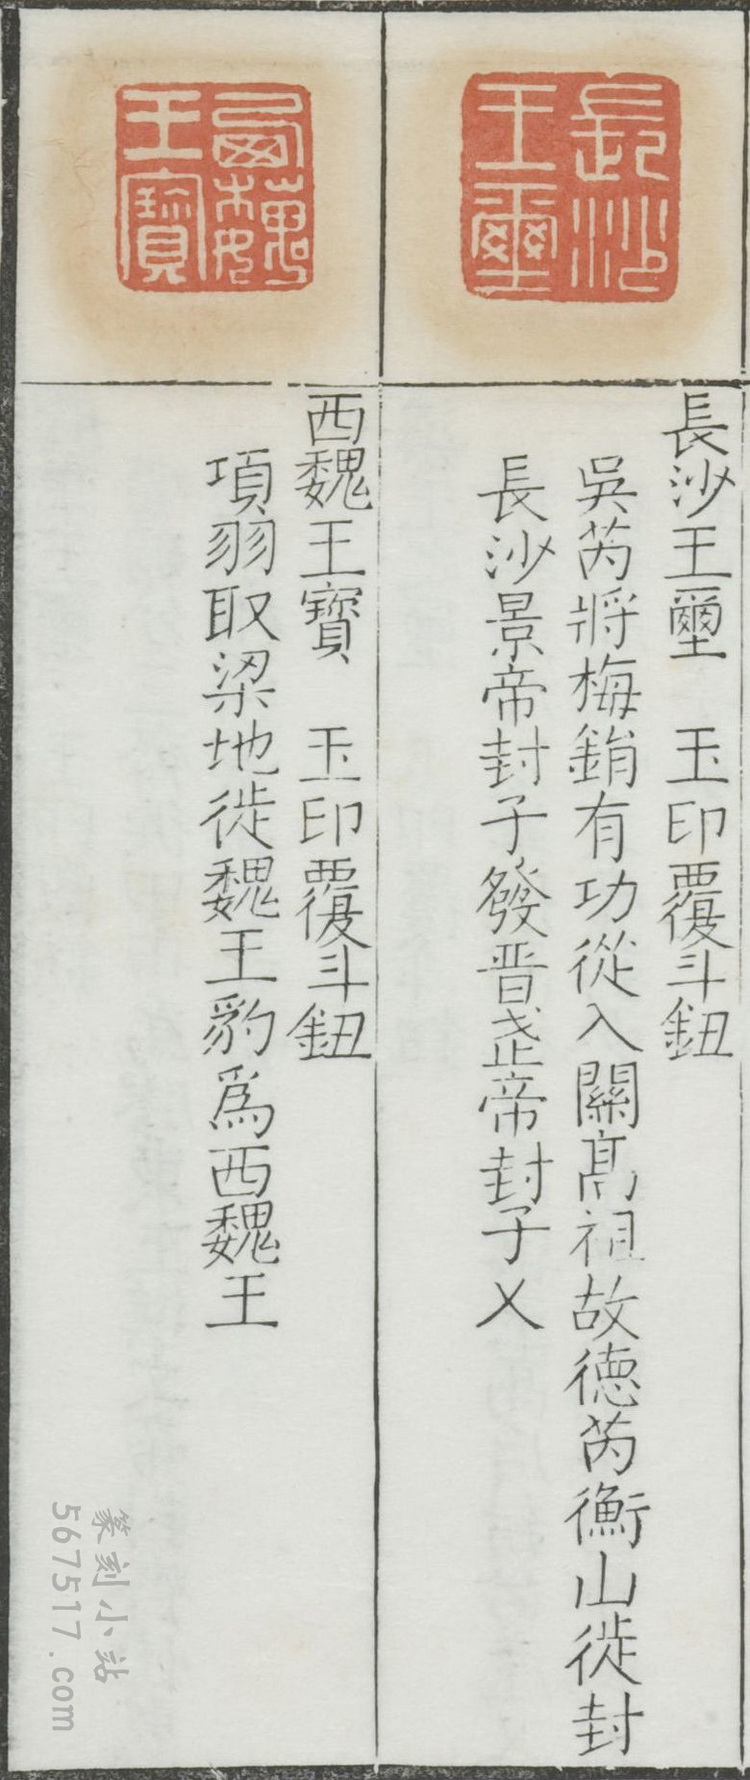 長沙王璽
長沙王壐　玉印覆斗鈕
吳芮將梅鋗有功從入關髙祖故徳芮衡山徙封
長沙景帝封子發晋武帝封子乂
西魏王寶
西魏王寳　玉印覆斗鈕
項羽取梁地徙魏王豹爲西魏王
篆刻小站
567517.com